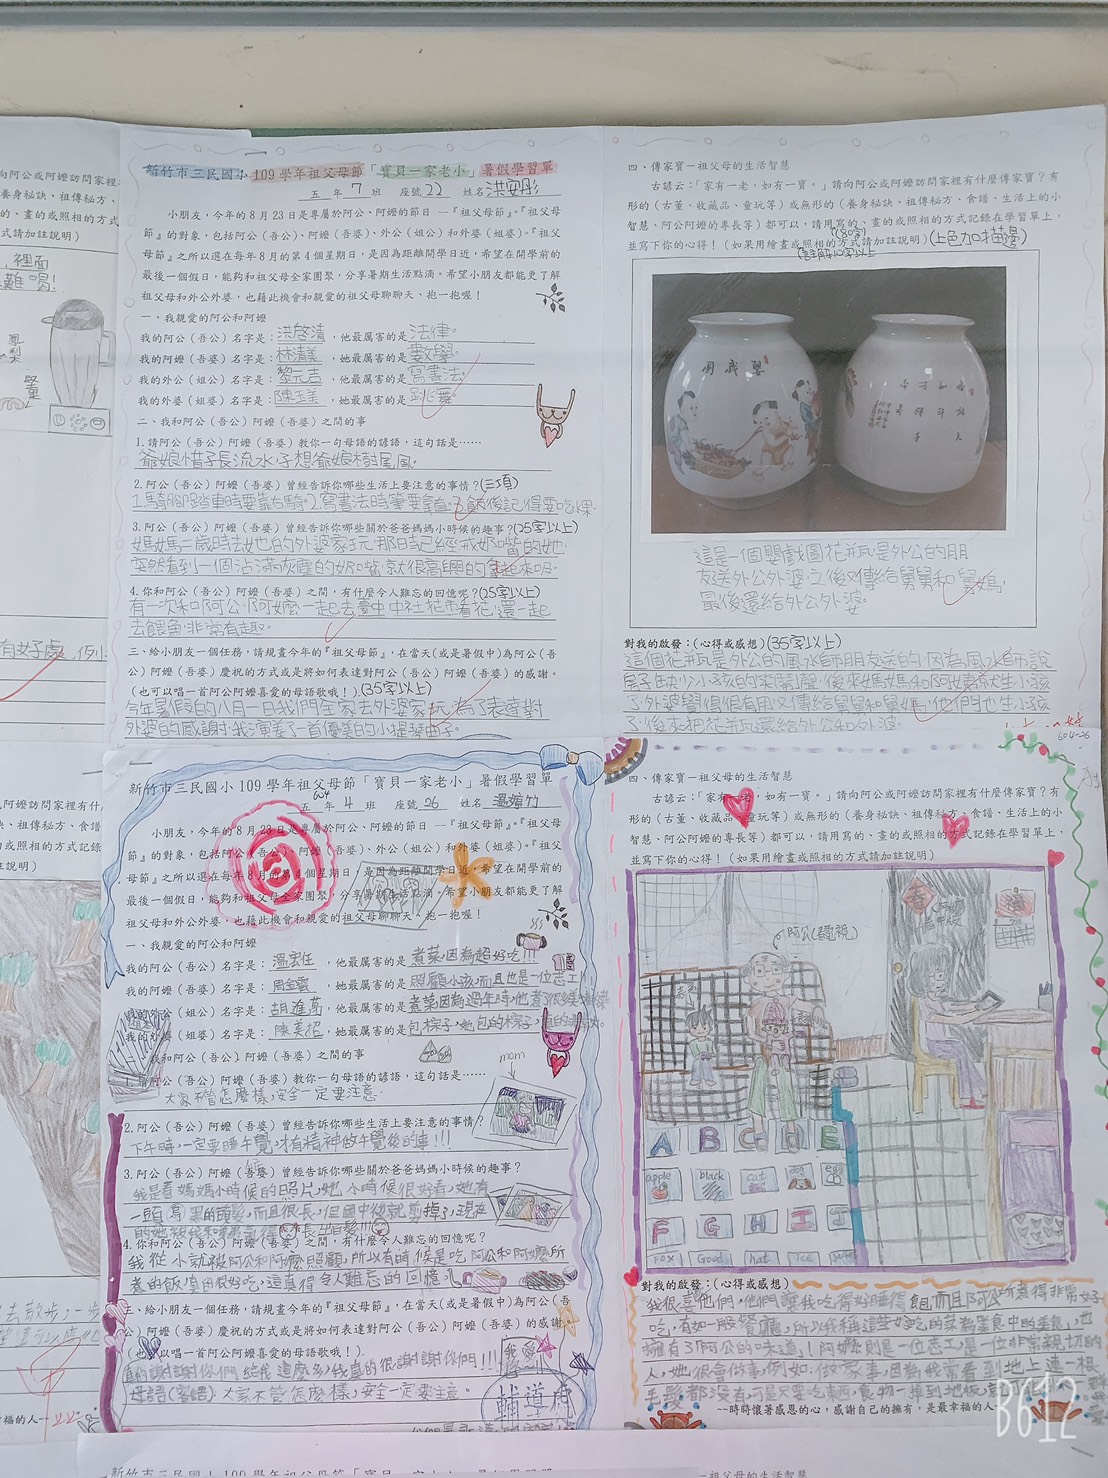 新竹市三民國小109學年祖父母節「寶貝一家老小」暑假學習單
五 年 7 班 座號 22 姓名 洪安彤
小朋友，今年的8月23日是專屬於阿公、阿嬤的節日 —『祖父母節』。『祖父母
節』的對象，包括阿公（吾公）、阿嬤（吾婆）、外公（姐公）和外婆（姐婆）。『祖父
母節』之所以選在每年8月的第4個星期日，是因為距離開學日近，希望在開學前的
最後一個假日，能夠和祖父母全家團聚，分享暑期生活點滴。希望小朋友都能更了解
祖父母和外公外婆，也藉此機會和親愛的祖父母聊聊天、抱一抱喔！
一、我親愛的阿公和阿嬤
我的阿公（吾公）名字是：洪啓清，他最厲害的是法律。
我的阿嬤（吾婆）名字是：林清美，她最厲害的是數學。
我的外公（姐公）名字是：黎元吉，他最厲害的是寫書法。
我的外婆（姐婆）名字是：陳玉美，她最厲害的是跳舞。
二、我和阿公（吾公）阿嬤（吾婆）之間的事
1.請阿公（吾公）阿嬤（吾婆）教你一句母語的諺語，這句話是……
爺娘惜子長流水,子想爺娘樹尾風。
2.阿公（吾公）阿嬤（吾婆）曾經告訴你哪些生活上要注意的事情？(三項)
1.騎腳踏車時要靠右騎。2.寫書法時筆要拿直。3.飯後記得要吃水果。
3.阿公（吾公）阿嬤（吾婆）曾經告訴你哪些關於爸爸媽媽小時候的趣事？(25字以上)
媽媽二歲時去她的外婆家玩,那時已經戒奶嘴的她,
突然看到一個沾滿灰塵的奶嘴,就很高興的拿起來吸。
4.你和阿公（吾公）阿嬤（吾婆）之間，有什麼令人難忘的回憶呢？(25字以上)
有一次和阿公、阿嬤一起去臺中中社花市看花,還一起
去餵魚,非常有趣。
三、給小朋友一個任務，請規畫今年的『祖父母節』，在當天(或是暑假中)為阿公（吾
公）阿嬤（吾婆）慶祝的方式或是將如何表達對阿公（吾公）阿嬤（吾婆）的感謝。
（也可以唱一首阿公阿嬤喜愛的母語歌哦！）。(35字以上)
今年暑假的八月一日我們全家去外婆家玩,為了表達對
外婆的感謝,我演奏了一首優美的小提琴曲子。
四、傳家寶－祖父母的生活智慧
古諺云：「家有一老，如有一寶。」請向阿公或阿嬤訪問家裡有什麼傳家寶？有
形的（古董、收藏品、童玩等）或無形的（養身秘訣、祖傳秘方、食譜、生活上的小
智慧、阿公阿嬤的專長等）都可以，請用寫的、畫的或照相的方式記錄在學習單上，
並寫下你的心得！（如果用繪畫或照相的方式請加註說明）(上色加描邊)
嬰戲圖
這是一個嬰戲圖花瓶,是外公的朋
友送外公外婆,之後又傳給舅舅和舅媽,
最後還給外公外婆。
對我的啟發：(心得或感想)(35字以上)
這個花瓶是外公的風水師朋友送的,因為風水師說
房子缺少小孩的笑鬧聲,後來媽媽和阿姨就生小孩
了,外婆覺得很有用,又傳給舅舅和舅媽,他們也生小孩
了,後來把花瓶還給外公和外婆。
604-26
新竹市三民國小109學年祖父母節「寶貝一家老小」暑假學習單
604
五 年 4 班 座號 26 姓名
小朋友，今年的8月23日是專屬於阿公、阿嬤的節日 —『祖父母節』。『祖父母
節』的對象，包括阿公（吾公）、阿嬤（吾婆）、外公（姐公）和外婆（姐婆）。『祖父
母節』之所以選在每年8月的第4個星期日，是因為距離開學日近，希望在開學前的
最後一個假日，能夠和祖父母全家團聚，分享暑期生活點滴。希望小朋友都能更了解
祖父母和外公外婆，也藉此機會和親愛的祖父母聊聊天、抱一抱喔！
一、我親愛的阿公和阿嬤
我的阿公（吾公）名字是：溫宏任，他最厲害的是 煮菜,因為超好吃!!!
我的阿嬤（吾婆）名字是：，她最厲害的是 照顧小孩,而且也是一位志工
外公（姐公）名字是：胡進，他最厲害的是 煮菜因為過年時,他煮了很多
外婆（姐婆）名字是：陳美花，她最厲害的是 包粽子,她包的粽子
我和阿公（吾公）阿嬤（吾婆）之間的事
1.請阿公（吾公）阿嬤（吾婆）教你一句母語的諺語，這句話是……
大家不管怎麼樣,安全一定要注意.
mom
2.阿公（吾公）阿嬤（吾婆）曾經告訴你哪些生活上要注意的事情？
下午時,一定要睡午覺,才有精神做午覺後的事!!!
3.阿公（吾公）阿嬤（吾婆）曾經告訴你哪些關於爸爸媽媽小時候的趣事？
我是看媽媽小時候的照片,她小時候很好看,她有
一頭烏黑的頭髮,而且很長,但國中後就剪掉了,現在
4.你和阿公（吾公）阿嬤（吾婆）之間，有什麼令人難忘的回憶呢？
我從小就被阿公和阿嬤照顧,所以有時候是吃阿公和阿嬤所
煮的飯,真的很好吃,這真是令人難忘的回憶
三、給小朋友一個任務，請規畫今年的『祖父母節』，在當天(或是暑假中)為阿公（吾
公）阿嬤（吾婆）慶祝的方式或是將如何表達對阿公（吾公）阿嬤（吾婆）的感謝。
（也可以唱一首阿公阿嬤喜愛的母語歌哦！）.
真的謝謝你們給我這麼多,我真的很謝謝你們!!!
母語(客語):大家不管怎麼樣,安全一定要注意.
輔導
四、傳家寶－祖父母的生活智慧
古諺云：「家有一老，如有一寶。」請向阿公或阿嬤訪問家裡有什麼傳家寶？有
形的（古董、收藏品、童玩等）或無形的（養身秘訣、祖傳秘方、食譜、生活上的小
智慧、阿公阿嬤的專長等）都可以，請用寫的、畫的或照相的方式記錄在學習單上，
並寫下你的心得！（如果用繪畫或照相的方式請加註說明）
阿公(看電視)
春
A B C H E
apple black cat egg
F G H I J
fox Good hat Ice
對我的啟發：(心得或感想)
我很喜他們,他們讓我吃得好,睡得飽,而且阿公所煮得非常好
吃,有如一般餐廳,所以我稱這些好吃的菜為美食中的美食,也
擁有了阿公的味道!阿嬤則是一位志工,是一位非常親切的
人,她很會做事,例如:做家事,因為我常看到地上連一根
毛髮都沒有,可是只要吃東西,食物一掉到地板,
--時時懷著感恩的心，感謝自己的擁有，是最幸福的人
B612